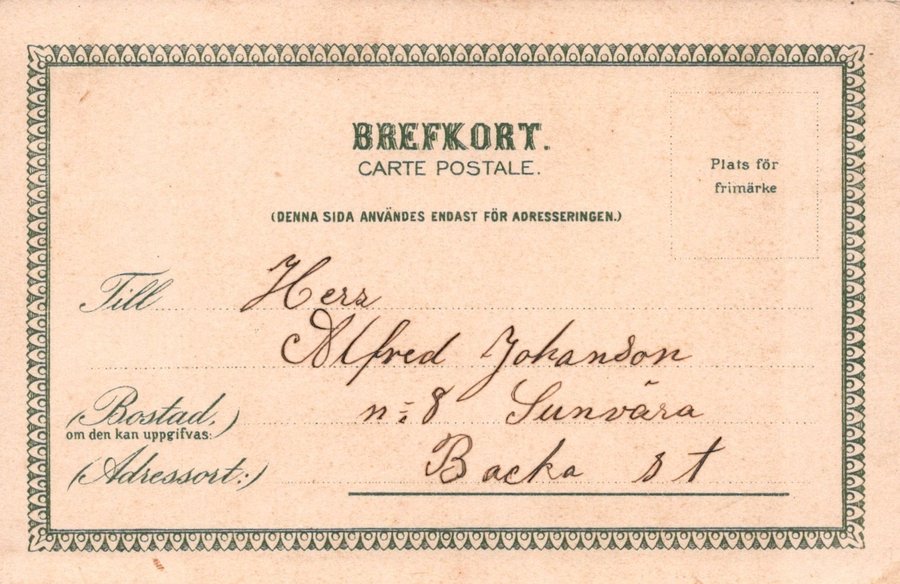 BREFKORT.
CARTE POSTALE.
Plats för
frimärke
(DENNA SIDA ANVÄNDES ENDAST FÖR ADRESSERINGEN.)
Till Herr
Alfred Johanson
(Bostad,) n:8 Sunvära
om den kan uppgifvas:
(Adressort:) Backa st